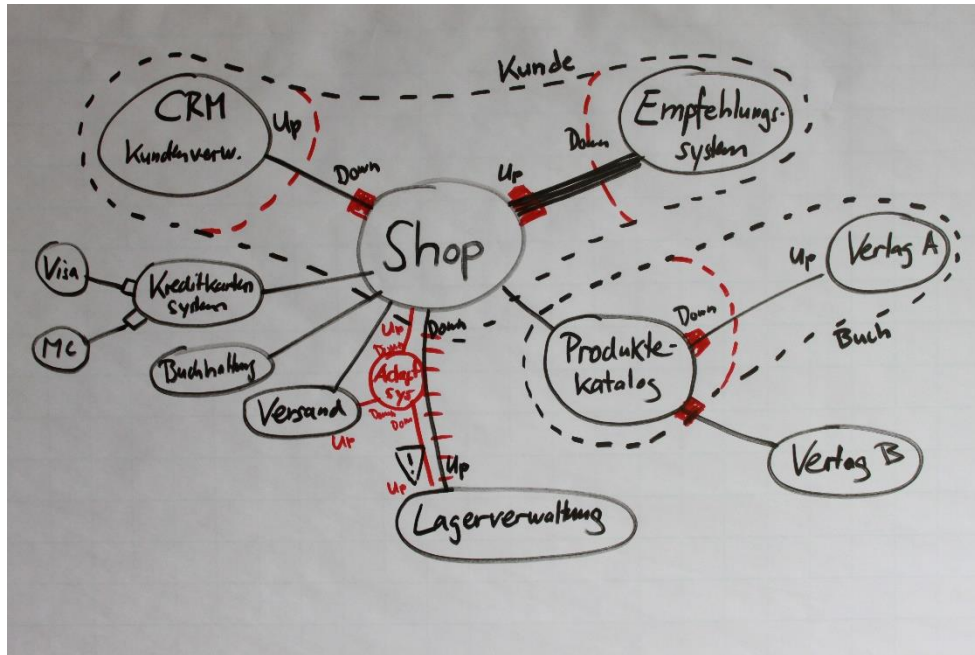 Kunde
CRM
Kundenverw.
Up
Down
Empfehlungs-
system
Down
Up
Shop
Visa
MC
Kreditkarten
system
Buchhaltung
Versand
Up
Up
Down
Adapt
sys
Down
Down
Up
Down
!
Up
Lagerverwaltung
Produkte-
katalog
Down
Up
Verlag A
Buch
Verlag B